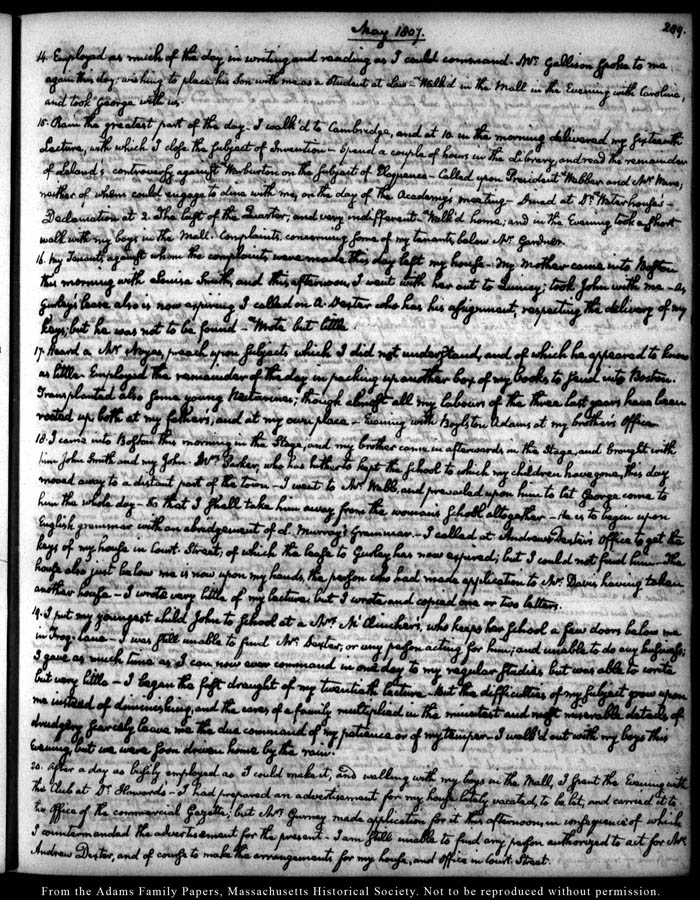 May 1807.
289.
14. Employed as much of the day in writing and reading as I could command. Mr. Gallison spoke to me
again this day, wishing to place his Son with me as a student at Law— Walk'd in the Mall in the Evening with Caroline,
and took George with us.
15. Rain the greatest part of the day— I walk'd to Cambridge, and at 10. in the morning delivered my sixteenth
Lecture, with which I close the subject of Invention— Spend a couple of hours in the Library, and read the remainder
of Leland's controversy against Warburton on the subject of Eloquence— Called upon President Webber and Mr. Ware;
neither of whom could engage to dine with me, on the day of the Academy's meeting— Dined at Dr. Waterhouse's—
Declamation at 2. The last of the Quarter; and very indifferent— Walk'd home; and in the Evening took a short
walk with my boys in the Mall. Complaints concerning some of my tenants below Mr. Gardner.
16. My Tenants against whom the complaints were made this day left my house— My Mother came into Boston
this morning with Louisa Smith, and this afternoon, I went with her out to Quincy; took John with me— As
Gurley's lease also is now expiring I called on A. Dexter who has his assignment, respecting the delivery of my
keys; but he was not to be found— Wrote but little.
17. Heard a Mr. Noyes, preach upon subjects which I did not understand, and of which he appeared to know
as little. Employed the remainder of the day in packing up another box of my books to send into Boston.
Transplanted also some young Nectarines; though almost all my labours of the three last years have been
rooted up, both at my father's, and at my own place— Evening with Boylston Adams at my brother's Office.
18. I came into Boston this morning in the Stage, and my brother came in afterwards in the Stage, and brought with
him John Smith and my John. Mrs. Parker, who has hitherto kept the School to which my children have gone, this day
moved away to a distant part of the town— I went to Mr. Wells, and prevailed upon him to let George come to
him the whole day— So that I shall take him away from the woman's school altogether— He is to begin upon
English grammar with an abridgement of L. Murray's Grammar.— I called at Andrew Dexter's Office to get the
keys of my house in Court-Street, of which the lease to Gurley has now expired; but I could not find him— The
house also just below me is now upon my hands, the person who had made application to Mr. Davis having taken
another house— I wrote very little of my lecture, but I wrote and copied one or two letters.
19. I put my youngest child John to School at a Mrs. , who keeps her School a few doors below me
in Frog-lane— I was still unable to find Mr. Dexter, or any person acting for him; and unable to do any business;
I gave as much time as I can now ever command in one day to my regular studies but was able to write
but very little— I began the first draught of my twentieth lecture— But the difficulties of my subject grow upon
me instead of diminishing, and the cares of a family multiplied in the minutest and most miserable details of
drudgery scarcely leave me the due command of my patience or of my temper— I walk'd out with my boys this
Evening, but we were soon driven home by the rain.
20. After a day as busily employed as I could make it, and walking with my boys in the Mall, I spent the Evening with
the Club at Dr. Howard's— I had prepared an advertisement for my house lately vacated, to be let, and carried it to
the Office of the commercial Gazette; but Mr. Gurney made application for it this afternoon, in consequence of which
I countermanded the advertisement for the present— I am still unable to find any person authorized to act for Mr.
Andrew Dexter, and of course to make the arrangements for my house, and office in Court-Street.
From the Adams Family Papers, Massachusetts Historical Society. Not to be reproduced without permission.